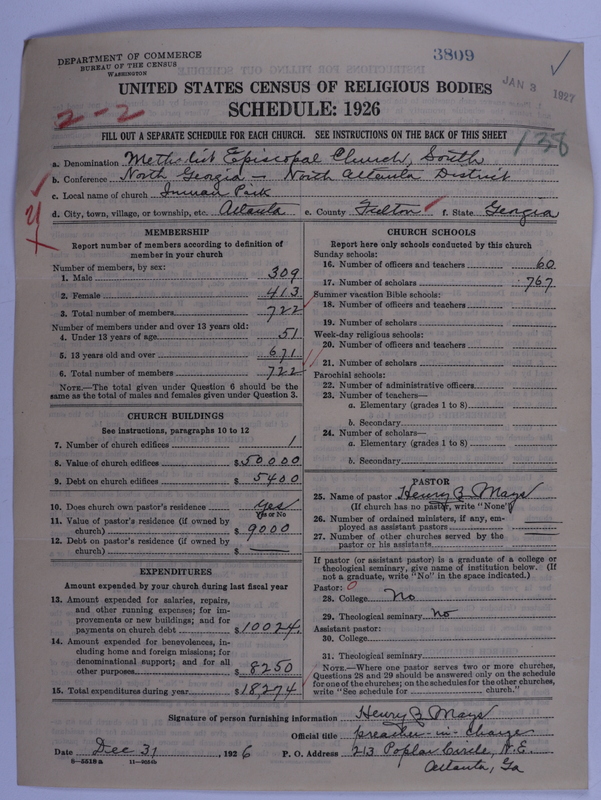 DEPARTMENT OF COMMERCE
BUREAU OF THE CENSUS
WASHINGTON
3809
JAN 3 1927
UNITED STATES CENSUS OF RELIGIOUS BODIES
SCHEDULE: 1926
2-2
FILL OUT A SEPARATE SCHEDULE FOR EACH CHURCH. SEE INSTRUCTIONS ON THE BACK OF THIS SHEET
138
a. Denomination Methodist Episcopal Church, South
b. Conference North Georgia - North Atlanta District
c. Local name of church Inman Park
d. City, town, village, or township, etc. Atlanta e. County Fulton f. State Georgia
MEMBERSHIP
Report number of members according to definition of
member in your church
Number of members, by sex:
1. Male 309
2. Female 413
3. Total number of members 722
Number of members under and over 13 years old:
4. Under 13 years of age 51
5. 13 years old and over 671
6. Total number of members 722
NOTE.—The total given under Question 6 should be the
same as the total of males and females given under Question 3.
CHURCH BUILDINGS
See instructions, paragraphs 10 to 12
7. Number of church edifices 1
8. Value of church edifices $50000
9. Debt on church edifices $5400
10. Does church own pastor's residence Yes
Yes or No
11. Value of pastor's residence (if owned by
church) $9000
12. Debt on pastor's residence (if owned by
church) $
EXPENDITURES
Amount expended by your church during last fiscal year
13. Amount expended for salaries, repairs,
and other running expenses; for im-
provements or new buildings; and for
payments on church debt $10024
14. Amount expended for benevolences, in-
cluding home and foreign missions; for
denominational support; and for all
other purposes $8250
15. Total expenditures during year $18,274
CHURCH SCHOOLS
Report here only schools conducted by this church
Sunday schools:
16. Number of officers and teachers 60
17. Number of scholars 767
Summer vacation Bible schools:
18. Number of officers and teachers
19. Number of scholars
Week-day religious schools:
20. Number of officers and teachers
21. Number of scholars
Parochial schools:
22. Number of administrative officers
23. Number of teachers—
a. Elementary (grades 1 to 8)
b. Secondary
24. Number of scholars—
a. Elementary (grades 1 to 8)
b. Secondary
PASTOR
25. Name of pastor Henry B. Mays
(If church has no pastor, write "None")
26. Number of ordained ministers, if any, em-
ployed as assistant pastors
27. Number of other churches served by the
pastor or his assistants
If pastor (or assistant pastor) is a graduate of a college or
theological seminary, give name of institution below. (If
not a graduate, write "No" in the space indicated.)
Pastor: 0
28. College No
29. Theological seminary No
Assistant pastor:
30. College
31. Theological seminary
NOTE.—Where one pastor serves two or more churches,
Questions 28 and 29 should be answered only on the schedule
for one of the churches; on the schedules for the other churches,
write "See schedule for church."
Signature of person furnishing information Henry B. Mays
Official title preacher-in-charge
Date Dec 31, 1926 P. O. Address 213 Poplar Circle, N.E.
8-5518a Atlanta, Ga